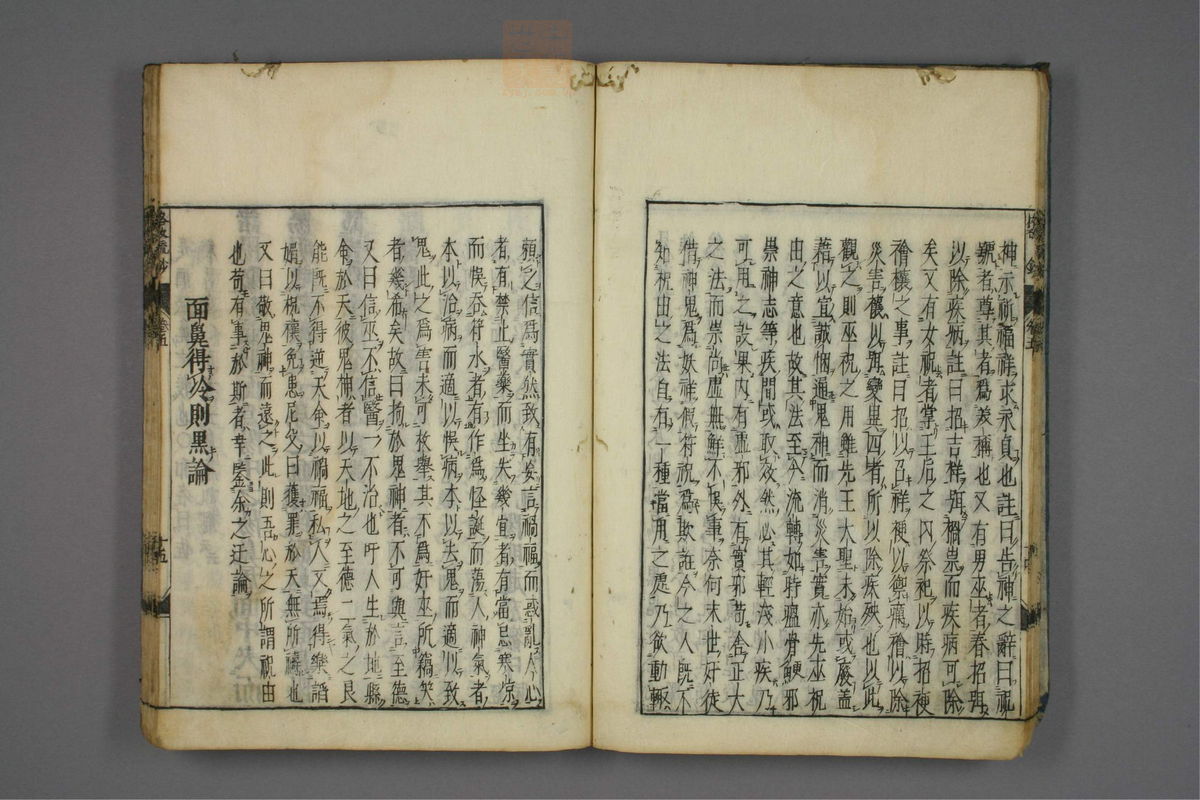 神示祈福祥求永貞也註曰告神之辭曰祝
號者尊其者爲美稱也又有男巫者春招弭
以除疾病註曰招吉祥弭禍祟而疾病可除
矣又有女祝者掌王后之内祭祀以時招梗
禬禳之事註曰招以召祥梗以禦癘禬以除
災害禳以弭變異四者所以除疾殃也以此
觀之則巫祝之用雖先王大聖未始或廢蓋
藉以宜誠悃通鬼神而消災害實亦先巫祝
由之意也故其法至今流轉如時瘟骨鯁邪
祟神志等疾間或取效然必其輕淺小疾乃
可用之設果内有虛邪外有實邪苟舍正大
之法而崇尚虛無鮮不悞事奈何末世奸徒
借神鬼爲妖祥假符祝爲欺誑今之人既不
知祝由之法自有一種當用之處乃欲動輒
賴之信爲實然致有妄言禍福而惑亂人心
者有禁止醫藥而坐失幾宜者有當忌寒凉
而悞吞符水者有作爲怪誕而蕩人神氣者
本以治病而適以悞病本以去鬼而適以致
鬼此之爲害未可枚舉其不爲奸巫所竊笑
者幾希矣故曰拘於鬼神者不可與言至德
又曰信巫不信醫一不治也吁人生於地縣
命於天彼鬼神者以天地之至德二氣之良
能既不得逆天命以禍福私人又焉得樂諂
媚以祝禳免患尼父曰獲罪於天無所禱也
又曰敬鬼神而遠之此則吾心之所謂祝由
也苟有事於斯者幸鑒余之迂論
面鼻得冷則黑論
十五